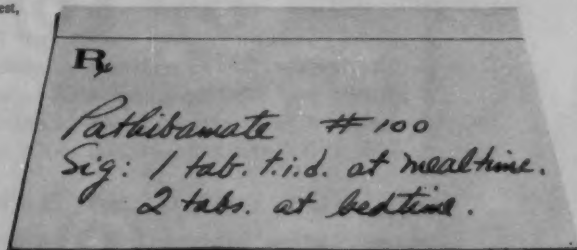 est,
℞
Pathibamate #100
Sig: 1 tab. t.i.d. at mealtime.
2 tabs. at bedtime.